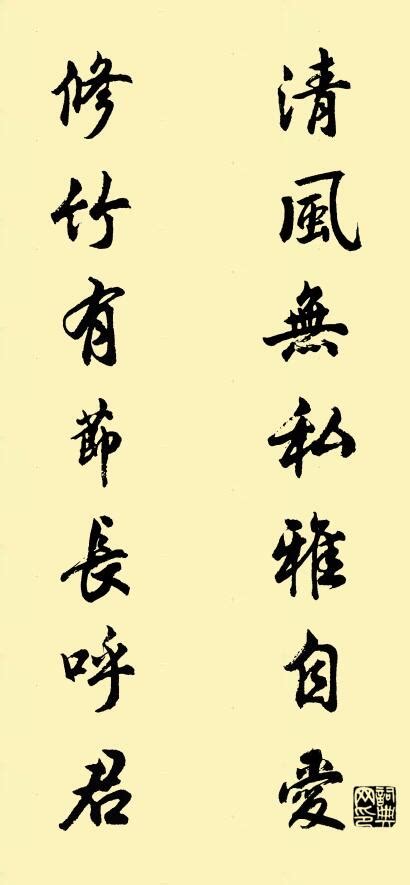 清風無私雅自愛
修竹有節長呼君
詞典
网印